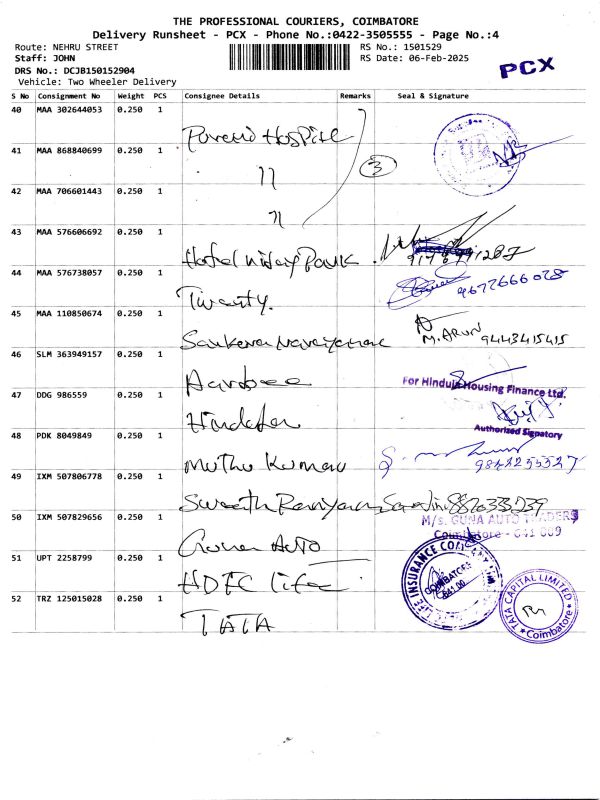 THE PROFESSIONAL COURIERS, COIMBATORE
Delivery Runsheet - PCX - Phone No.:0422-3505555 - Page No.:4
Route: NEHRU STREET RS No.: 1501529
Staff: JOHN RS Date: 06-Feb-2025
DRS No.: DCJB150152904
Vehicle: Two Wheeler Delivery
PCX
S No Consignment No Weight PCS Consignee Details Remarks Seal & Signature
40 MAA 302644053 0.250 1
Hospital
3
41 MAA 868840699 0.250 1
11
42 MAA 706601443 0.250 1
11
43 MAA 576606692 0.250 1
Hotel Vijay Park
44 MAA 576738057 0.250 1
Twenty. 9677666028
45 MAA 110850674 0.250 1
Sankara Narayanan M. ARUN 9443415415
46 SLM 363949157 0.250 1
For Hinduja Housing Finance Ltd.
47 DDG 986559 0.250 1
Authorized Signatory
48 PDK 8049849 0.250 1
Muthu Kumar
49 IXM 507806778 0.250 1
M/s. GUNA AUTO TRADERS
50 IXM 507829656 0.250 1
Coimbatore - 641 009
Guna Auto
51 UPT 2258799 0.250 1
HDFC life
LIFE INSURANCE COMPANY
COIMBATORE
52 TRZ 125015028 0.250 1
TATA
TATA CAPITAL LIMITED
Coimbatore